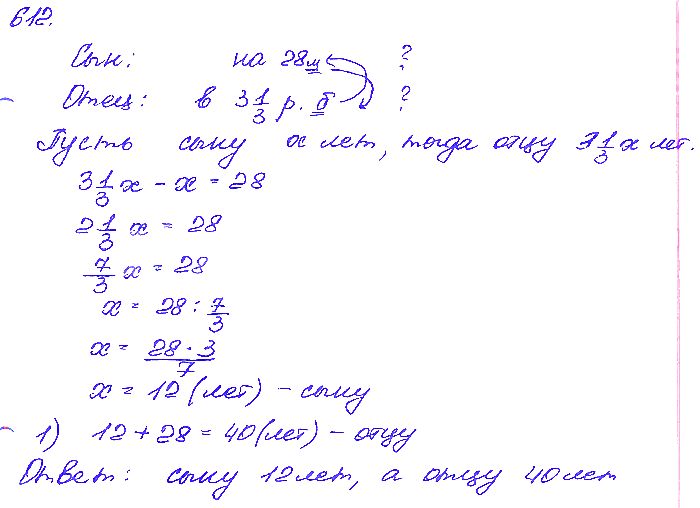 612.
Сын: на 28 м ?
Отец: в 3 1/3 р. б ?
Пусть сыну x лет, тогда отцу 3 1/3 x лет.
3 1/3 x - x = 28
2 1/3 x = 28
7/3 x = 28
x = 28 : 7/3
x = 28 · 3/7
x = 12 (лет) - сыну
1) 12 + 28 = 40 (лет) - отцу
Ответ: сыну 12 лет, а отцу 40 лет